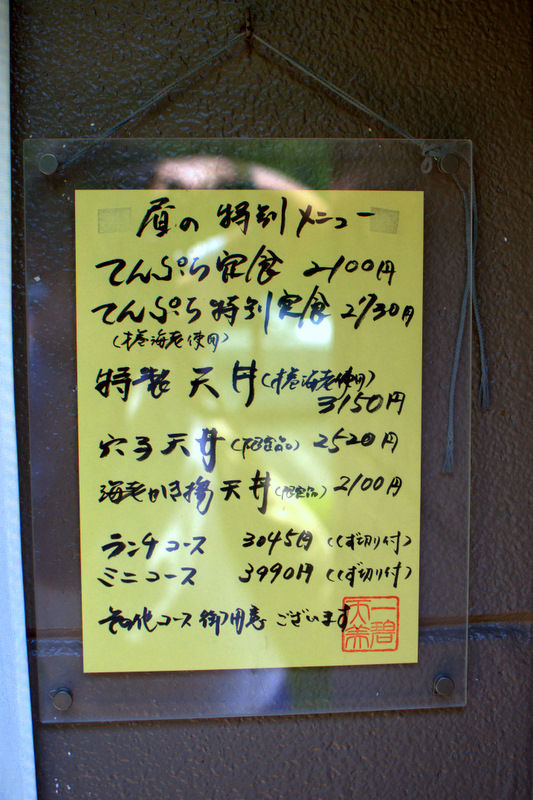 昼の特別メニュー
てんぷら定食 2100円
てんぷら特別定食 2730円
(才巻海老使用)
特製天丼(才巻海老使用)
3150円
穴子天丼(限定品) 2520円
海老かき揚天丼(限定品) 2100円
ランチコース 3045円(くず切り付)
ミニコース 3990円(くず切り付)
その他コース御用意ございます